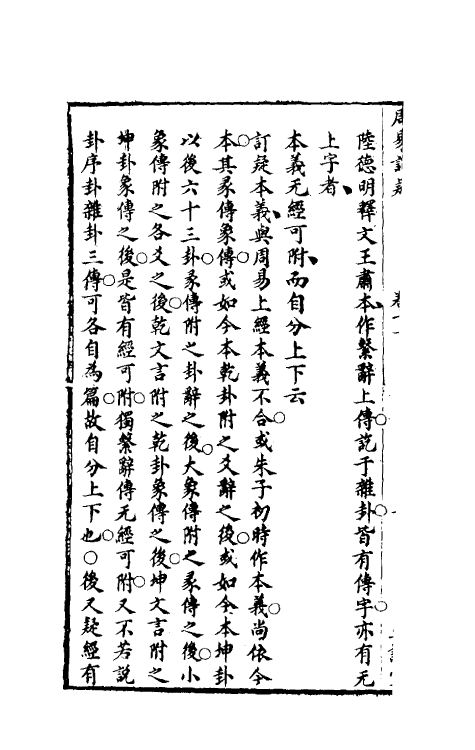 周易訂疑
陸德明釋文王肅本作繫辭上傳訖于雜卦皆有傳字亦有无
上字者
本義无經可附而自分上下云
訂疑本義與周易上經本義不合或朱子初時作本義尚依今
本其彖傳象傳或如今本乾卦附之爻辭之後或如今本坤卦
以後六十三卦彖傳附之卦辭之後大象傳附之彖傳之後小
象傳附之各爻之後乾文言附之乾卦象傳之後坤文言附之
坤卦象傳之後是皆有經可附獨繫辭傳无經可附又不若說
卦序卦雜卦三傳可各自為篇故自分上下也○後又疑經有